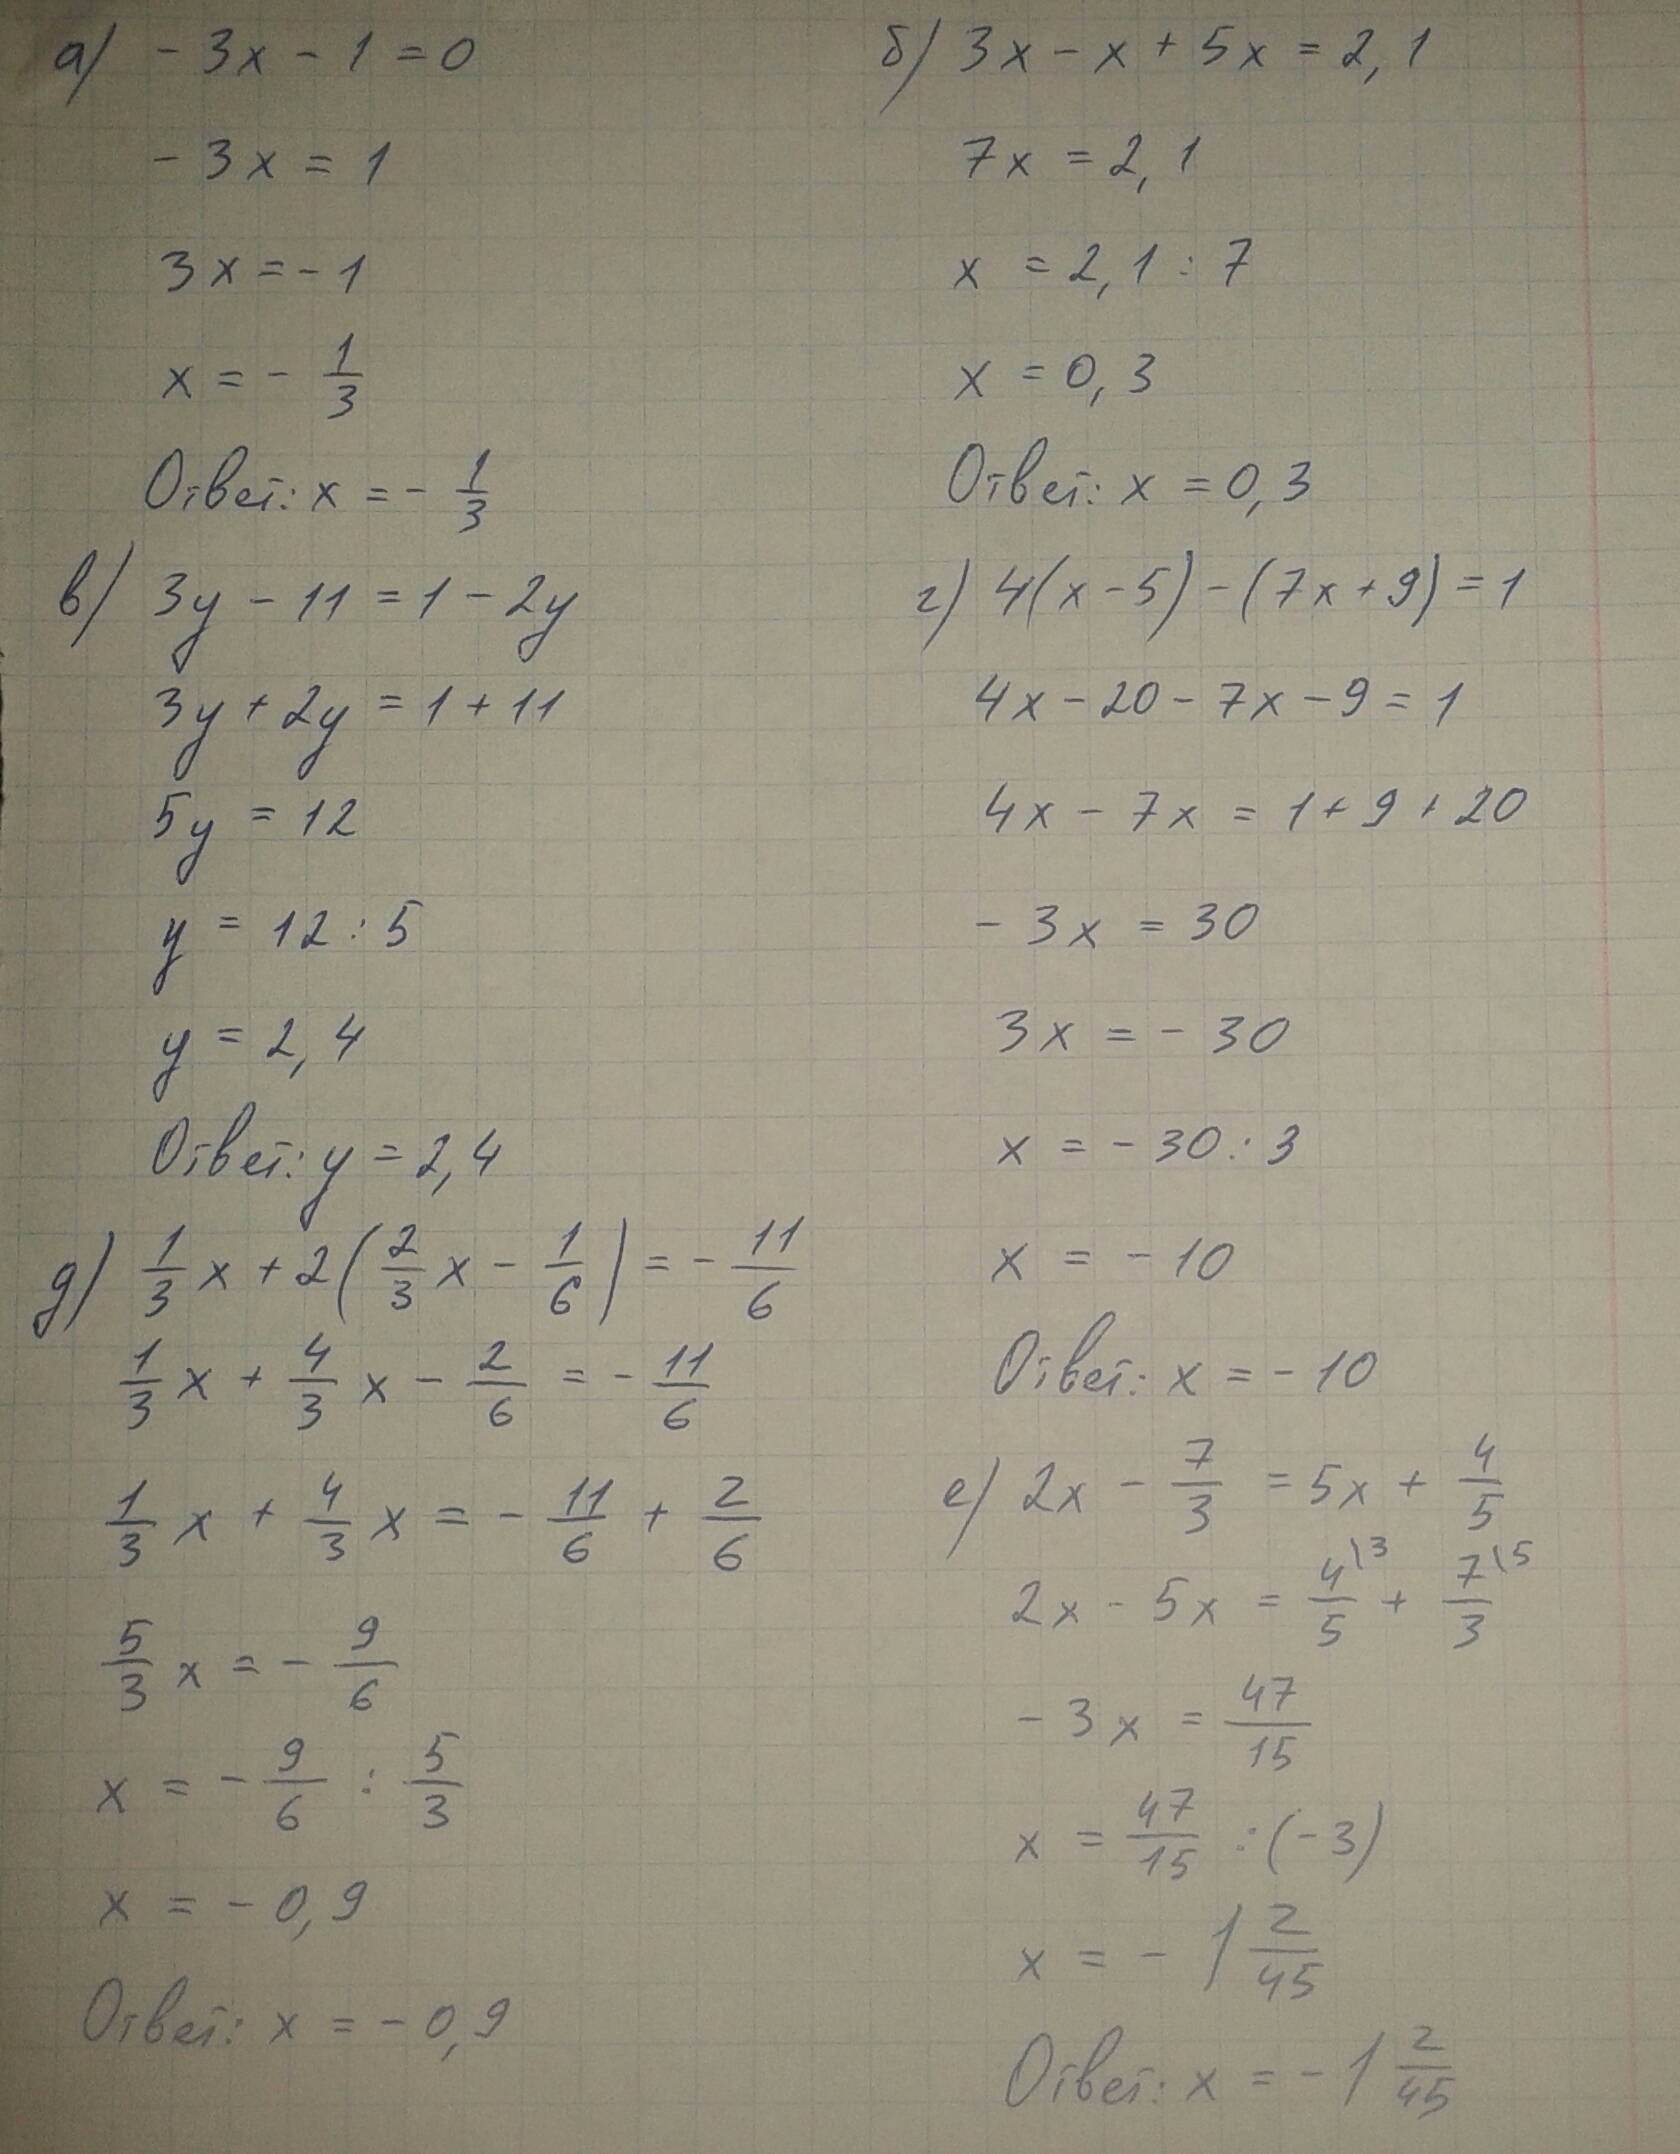 а) - 3x - 1 = 0
- 3x = 1
3x = - 1
x = - 1/3
Ответ: x = - 1/3
б) 3x - x + 5x = 2,1
7x = 2,1
x = 2,1 : 7
x = 0,3
Ответ: x = 0,3
в) 3y - 11 = 1 - 2y
3y + 2y = 1 + 11
5y = 12
y = 12 : 5
y = 2,4
Ответ: y = 2,4
г) 4(x - 5) - (7x + 9) = 1
4x - 20 - 7x - 9 = 1
4x - 7x = 1 + 9 + 20
- 3x = 30
3x = - 30
x = - 30 : 3
x = - 10
Ответ: x = - 10
д) 1/3 x + 2(2/3 x - 1/6) = - 11/6
1/3 x + 4/3 x - 2/6 = - 11/6
1/3 x + 4/3 x = - 11/6 + 2/6
5/3 x = - 9/6
x = - 9/6 : 5/3
x = - 0,9
Ответ: x = - 0,9
е) 2x - 7/3 = 5x + 4/5
2x - 5x = 4/5 \3 + 7/3 \5
- 3x = 47/15
x = 47/15 : (-3)
x = - 1 2/45
Ответ: x = - 1 2/45